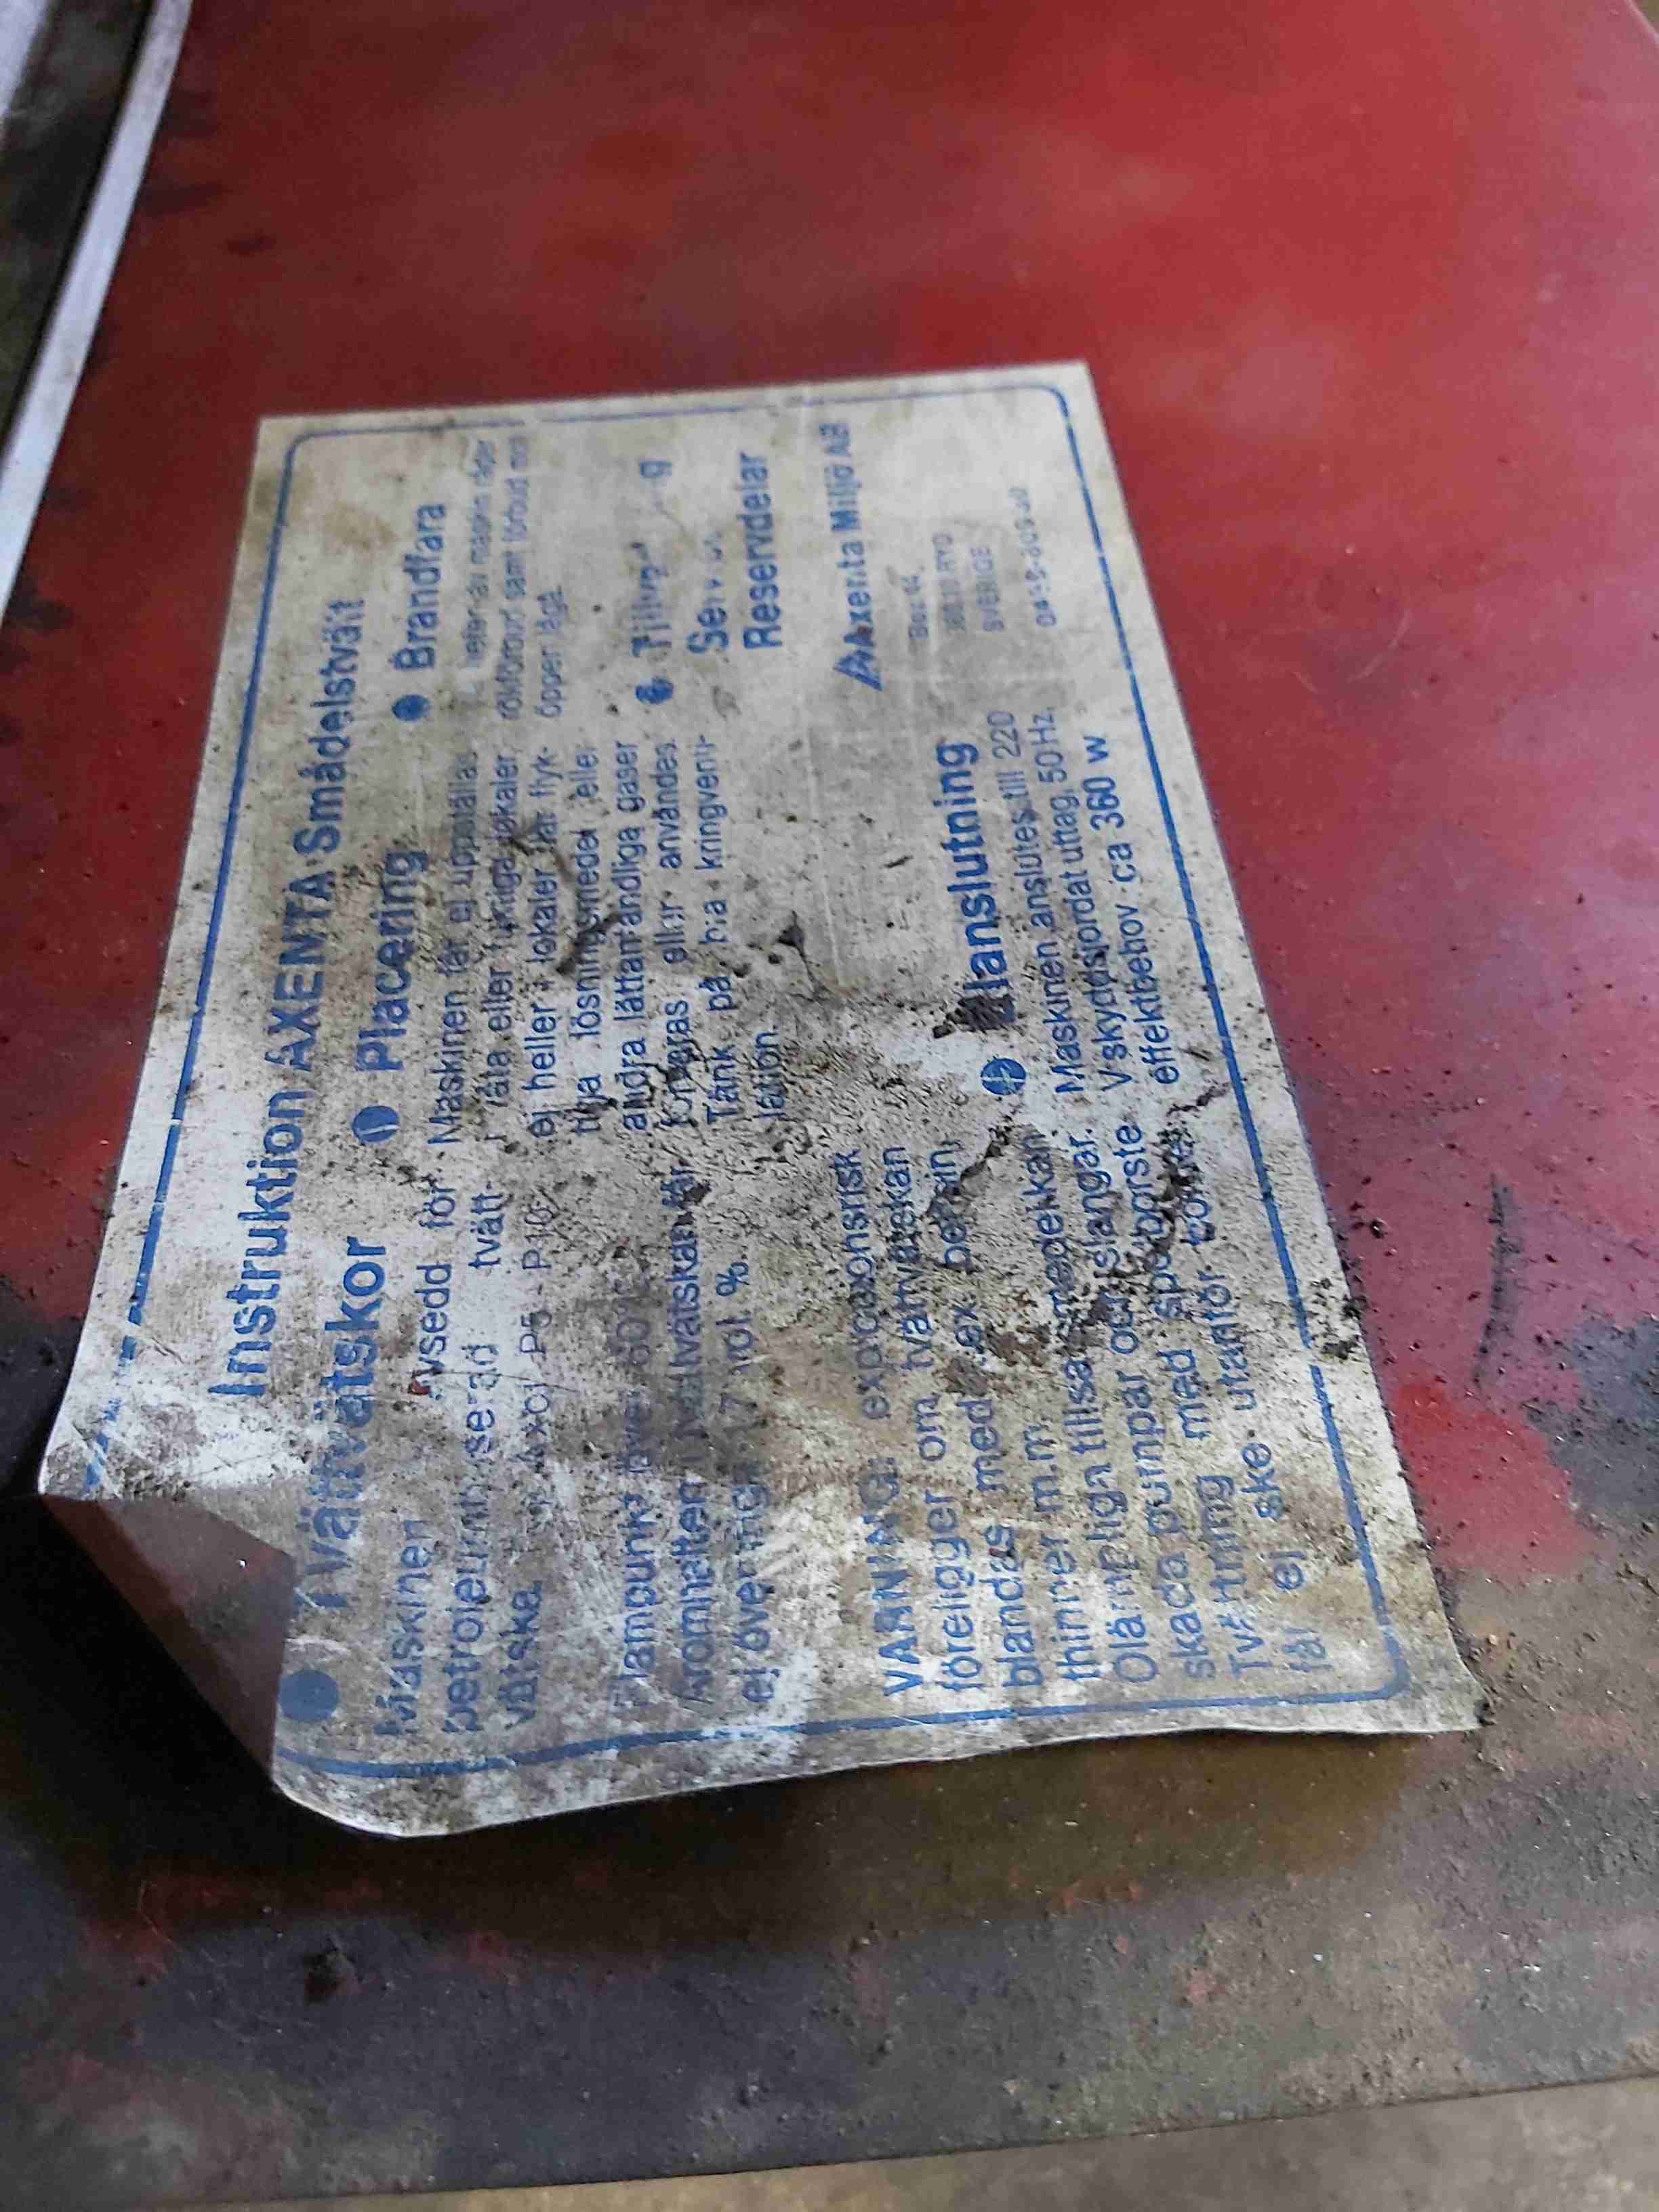 Instruktion AXENTA Smådelstvätt
Tvättvätskor
Maskinen avsedd för
petroleumbaserad tvätt-
vätska Axol P5 - P10.
Flampunkt över 60°
Aromhalten i tvättvätskan får
ej överstiga 17 vol. %.
VARNING: explosionsrisk
föreligger om tvättvätskan
blandas med ex bensin,
thinner m.m.
Olämpliga tillsatsmedel kan
skada pumpar och slangar.
Tvättning med sprutborste
får ej ske utanför
Placering
Maskinen får ej uppställas
i våta eller fuktiga lokaler,
ej heller i lokaler där flyk-
tiga lösningsmedel eller
andra lättantändliga gaser
förvaras eller användes.
Tänk på bra kringventi-
lation.
Elanslutning
Maskinen anslutes till 220
V skyddsjordat uttag, 50 Hz,
effektbehov ca 360 w
Brandfara
I närheten av maskin råder
rökförbud samt förbud mot
öppen låga.
Service
Reservdelar
Axenta Miljö AB
Box 64
RYD
SVERIGE